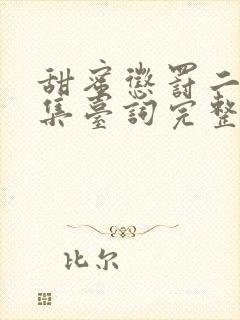 甜蜜懲罰二
集臺詞完整
比尔